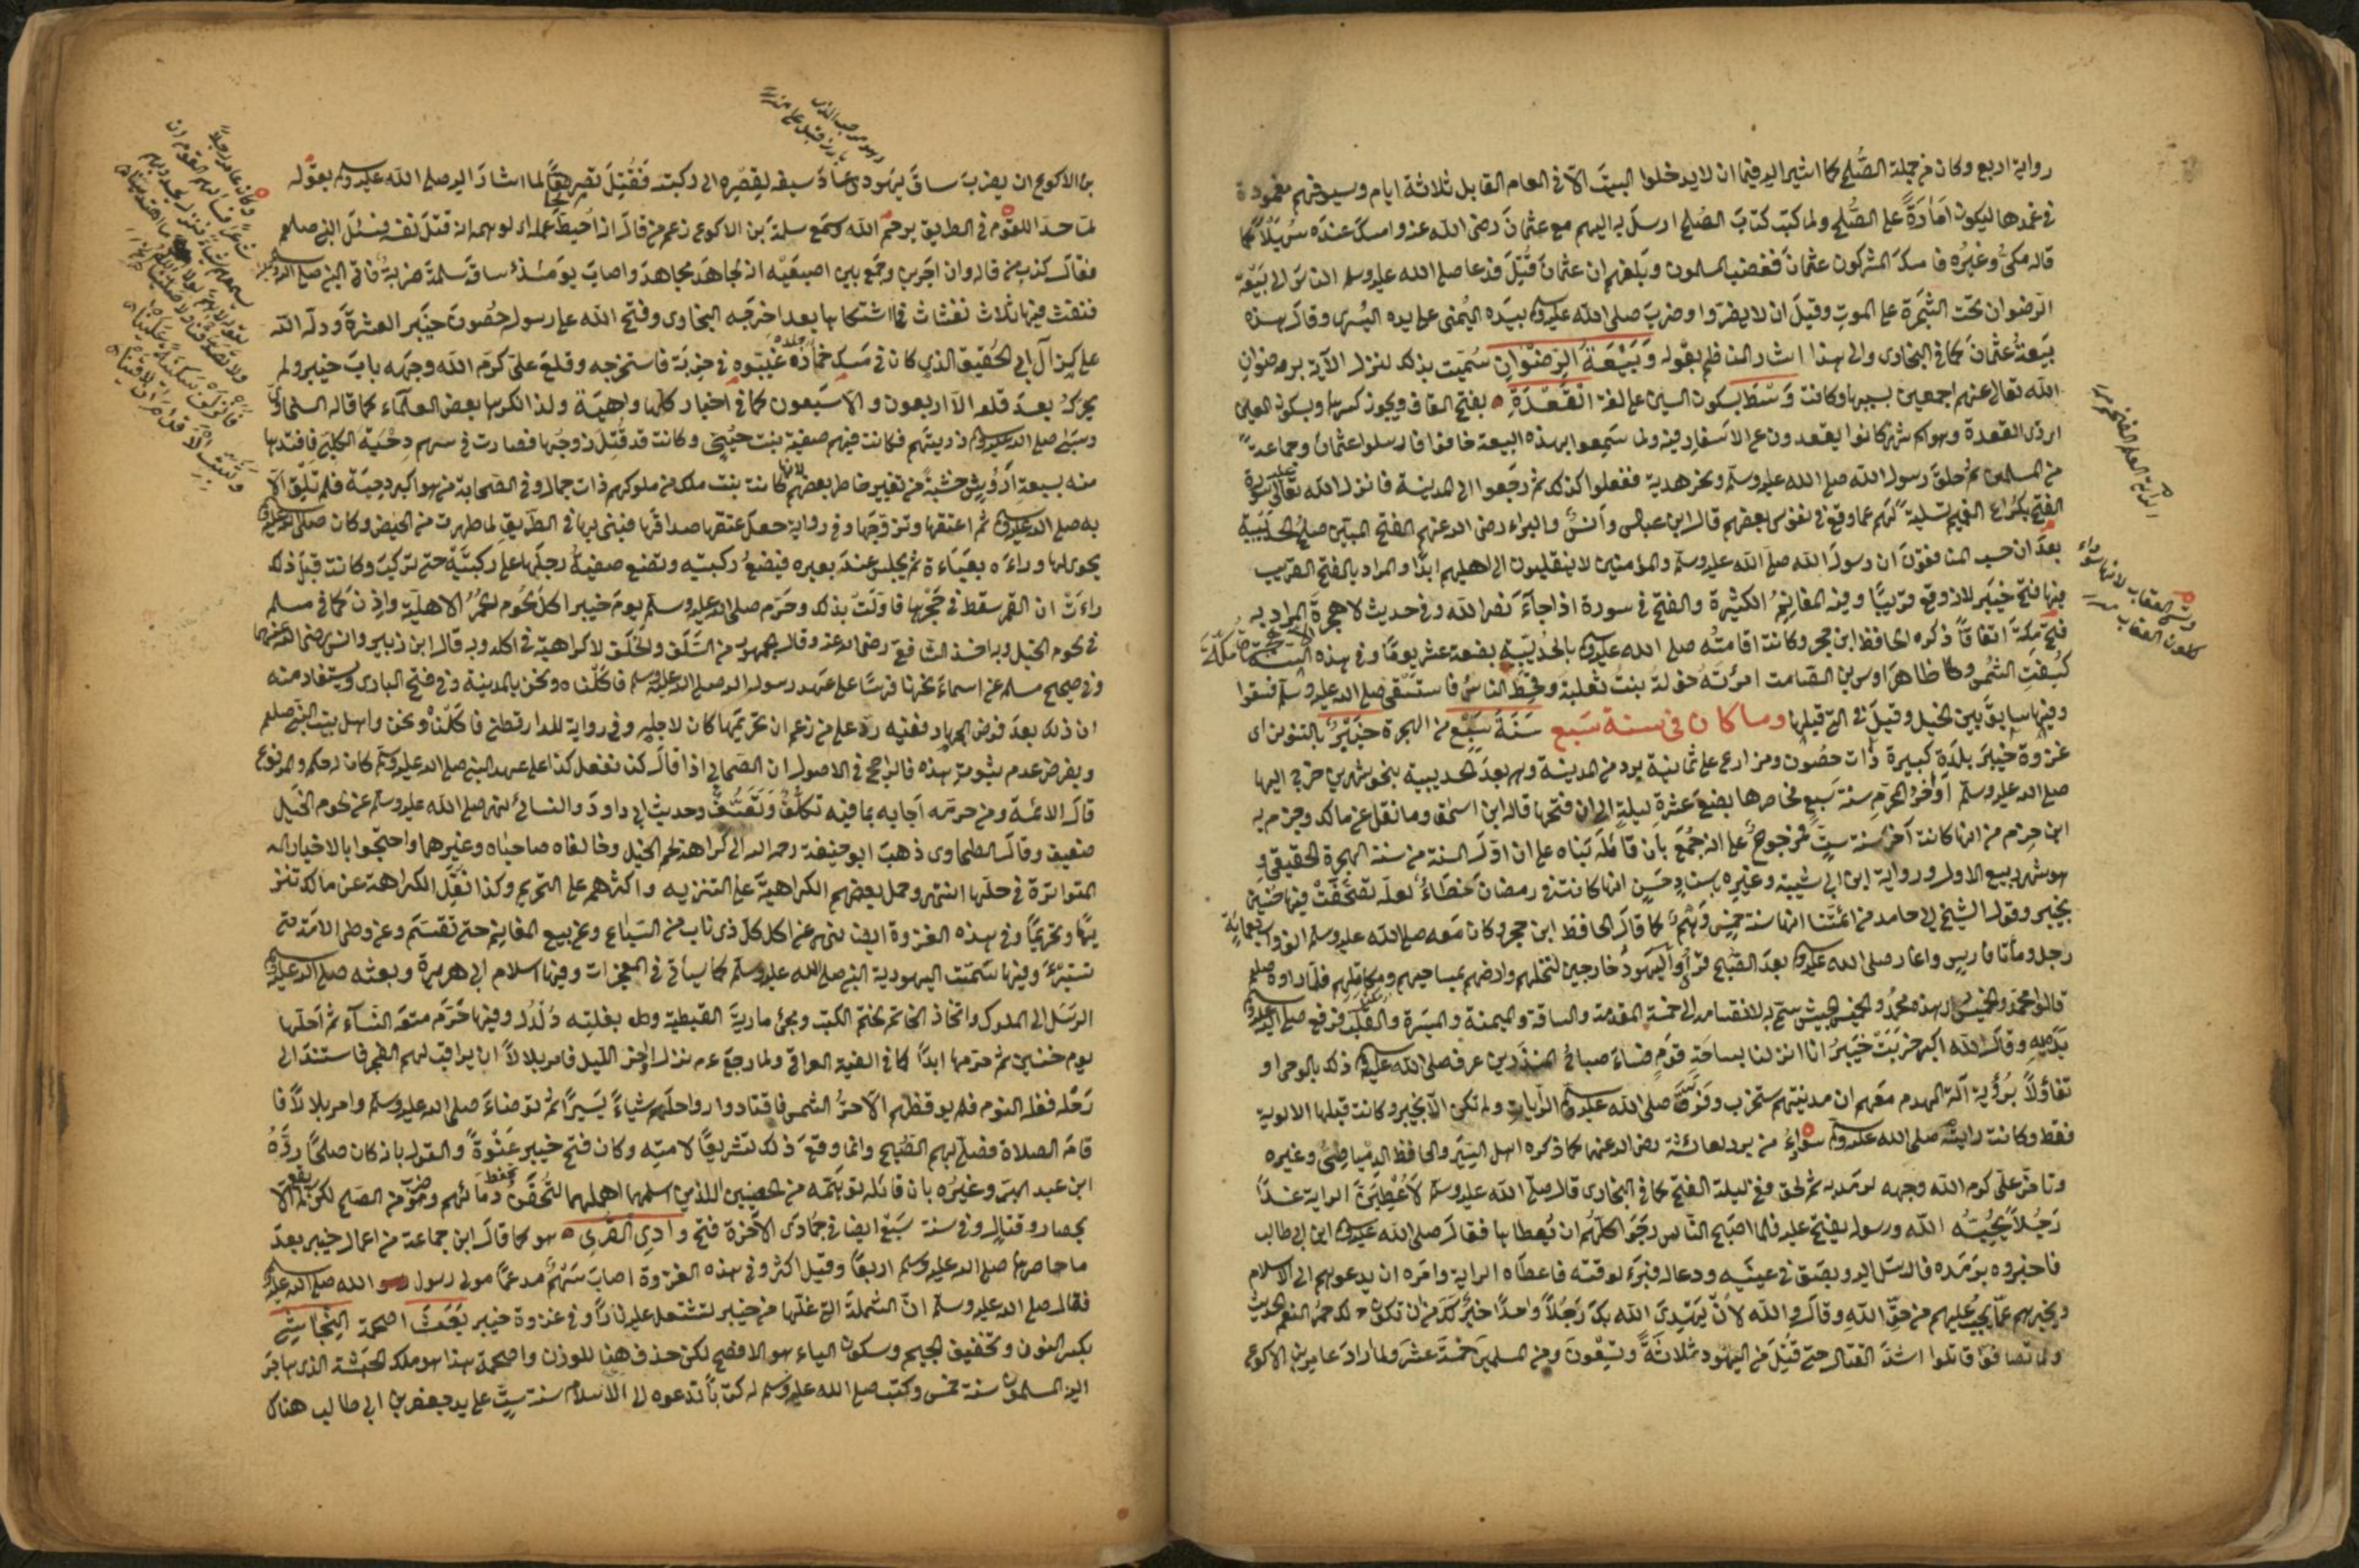 رواية اربع وكان من جملة الصُّلح كما اشير اليه فيما ان لا يدخلوا البيتَ الّا في العام القابل ثلاثة ايام وسيوفهم مغمودة
في غمدها ليكون امَارَةً على الصُّلح ولما كتب كتابَ الصُّلح ارسلَ به اليهم مع عثمانَ رضى الله عنه وامسكَ عنده سُهَيْلاً كما
قاله مكىّ وغيرُه فامسكَ المشركون عثمانَ فغضب المسلمون وبلغهم ان عثمانَ قُتِلَ فدعا صلى الله عليه وسلم الناسَ الى بَيْعَة
الرّضوان تحت الشجَرة على الموتِ وقيلَ ان لا يفرّوا وضربَ صلى الله عليه وسلم بيَده اليُمنى على يده اليُسرى وقالَ هذه
بيعَةُ عثمانَ كما في البخارى والى هذا اشار الناظم بقوله وَبَيْعَةُ الرِّضْوَانِ سُمّيت بذلك لنزول الآية برضوان
الله تعالى عنهم اجمعين بسببها وكانت وَسْطَ بسكون السين على لغة القَعْدَةِ بفتح القاف ويجوز كسرها وبسكون العين
اى ذى القعدة وهو اسم شهر كانوا يقعدون عن الاسفار فيه ولما سَمِعوا بهذه البيعة خافوا فارسلوا عثمانَ وجماعةً
من المسلمين ثم حلقَ رسول الله صلى الله عليه وسلم ونحر هديه ففعلوا كذلك ثم رجَعوا الى المدينة فانزل الله تعالى عليه سورة
الفتح بكُرَاع الغميم تسليةً لهم عما وقع في نفوس بعضهم قال ابن عباس وأنسٌ والبراء رضى الله عنهم الفتح المبين صلحُ الحديبية
بعدَ ان حسب المنافقون أن رسولَ الله صلى الله عليه وسلم والمؤمنين لا ينقلبون الى اهليهم ابدًا والمراد بالفتح القريب
فيها فتح خَيْبَر لانه وقع قريبًا وفيه المغانمُ الكثيرة والفتح في سورة اذا جآءَ نصر الله وفي حديث لا هجرةَ المراد به
فتح مكةَ اتفاقاً ذكره الحافظ ابن حجر وكانت اقامته صلى الله عليه وسلم بالحُدَيْبِيَة بضعةَ عشر يومًا وفي هذه السنة
كُسِفَتِ الشمسُ وظاهرَ اوس بن الصّامت امرأتَه خولة بنتُ ثعلبة وقَحِطَ الناسُ فاستسْقى صلى الله عليه وسلم فسُقوا
وفيها سابقَ بين الخيل وقيلَ في التى قبلها وما كان في سنة سَبع سَنَةَ سَبْعٍ من الهجرة خَيْبَرٌ بالتنوين اى
غزوة خيبَر بلدة كبيرة ذات حصُون ومزارع على ثمانية برد من المدينة وهى بعدَ الحديبية بنحو شهرين خرج اليها
صلى الله عليه وسلم أواخرَ المحرّم سنة سَبع فحاصرها بضعَ عشرةِ ليلةٍ الى ان فتحها قاله ابن اسحق وما نقل عن مالك وجزم به
ابن حزم من انها كانت آخرَ سنة ستٍّ فمرجوحٌ على انه جُمِعَ بان قائلَه بَناه على ان اوّلَ السنة من سنة الهجرة الحقيقى و
هو شهر ربيع الاول ورواية ابن ابى شيبة وغيره بسندٍ حَسَنٍ انها كانت في رمضان خطَاءٌ لعله تصحّفَتْ فيها حنين
بخيبر وقول الشيخ ابى حامد من ائمتنا انها سنة خمسٍ وَهَمٌ كما قالَ الحافظ ابن حجر وكان مَعه صلى الله عليه وسلم الف واربعمائة
رجل ومأتا فارسٍ واغار صلى الله عليه وسلم بعدَ الصّبح فرأوا اليَهودَ خارجين لنخلهم وارضهم بمساحيهم ومكاتلهم فلمّا راوه صلعم
قالوا محمّد والخميس اى هذه محمدٌ والخميسُ الجيش سمّى به لانقسامه الى خمسة المقدمة والساقة والميمنة والميسرة والقلب فرفع صلى الله عليه وسلم
يدَيه وقالَ الله اكبر خربَتْ خَيبرُ انا اذا نزلنا بساحَةِ قومٍ فسَاءَ صباحُ المنذَرين عرف صلى الله عليه وسلم ذلك بالوحى او
تفاؤلاً برُؤية آلة الهدم معَهم ان مدينتهم ستخرب وفَرّقَ صلى الله عليه وسلم الرّايات ولم تكن الّا بخيبر وكانت قبلها الالوية
فقط وكانت رايته صلى الله عليه وسلم سَوداءُ من بردٍ لعائشة رضى الله عنها كما ذكره اهل السِيَر والحافظ الدمياطىُّ وغيره
وتأخّر علىّ كرم الله وجهه لرمَدٍ به ثم لحق وفي ليلة الفتح كما في البخارى قال صلى الله عليه وسلم لأعْطِيَنَّ الراية غدًا
رَجُلاً يُحِبُّه الله ورسوله يفتح عليه فلما اصبح الناس رجَوا كلّهم ان يُعطاها فقالَ صلى الله عليه وسلم اين ابن ابى طالب
فاخبروه برَمَده فارسَل اليه وبصَق في عينَيه ودعا له فبرِءَ لوقته فاعطاه الراية وامَره ان يدعوهم الى الاسلام
ويخبرهم بما يجب عليهم من حقّ اللهِ وقالَ والله لأنْ يَهْدِىَ الله بكَ رَجُلاً واحدًا خيرٌ لكَ من ان تكون لك حمرُ النعم الحديث
ولما تصافوا قاتلوا اشدّ القتال حتى قُتِلَ من اليَهود ثلاثةٌ وتسْعونَ ومن المسلمين خمسَةَ عشَر ولما رادَ عامر بن الاكوع
الراية العلم الفخم
وتسمى العقاب لانها سوداء
كلون العقاب
بن الاكوع ان يضربَ ساقَ يَهودى عادَ سيفه لقِصَره الى ركبته فَقُتِلَ لما اشارَ اليه صلى الله عليه وسلم بقوله
لمّا حدَا للقوم في الطريق يرحَمُ الله وسَمع سلمة بن الاكوع زعم من قالَ انه احبِطَ عمله اى لوهمه انه قتلَ نفسه فسئلَ النبى صلعم
فقالَ كذبَ من قاله وان له اجرين وجَمع بين اصبعَيْه انه لجاهَد مجاهدَ واصابَ يومَئذٍ ساقَ سلمةَ ضربةٌ فاتى النبىّ صلى الله عليه وسلم
فنفث فيها ثلاث نفثات فما اشتكاها بعد اخرجَه البخارى وفتح الله على رسوله حُصُونَ خيبَر العشرةَ ودلّه الله
على كنز آل ابى الحُقيق الذى كان في مَسك حمَارٍ غيّبوه في خربَة فاستخرجه وقلعَ علىّ كرّم الله وجهه بابَ خيبر ولم
يحركه بعدَ قلعه الّا اربعون والاسبعون كما في اخبار كلها واهيَة ولذا انكرها بعض العلمآء كما قاله السخاوى
وسَبى صلى الله عليه وسلم ذريتهم فكانت فيهم صفية بنت حُيَىّ وكانت قد قُتِلَ زوجُها فصارت في سهم دِحْيَة الكلبىّ فافتداها
منه بسبعة ارؤسٍ خشيةً من تغيير خاطر بعضهم لانها كانت بنت ملكٍ من ملوكهم ذات جمال وفي الصحابة من هو اكبر من دحيَة فلم تلِق الّا
به صلى الله عليه وسلم ثم اعتقها وتزوّجَها وفي رواية جعلَ عتقها صداقَها فبنى بها في الطّريقِ لما طهرت من الحيض وكان صلى الله عليه وسلم
يحوى لها وراءَه بعبَاءَة ثم يجلس عندَ بعيره فيضعُ ركبتيه وتضع صفيةُ رجلَها على ركبتَيه حتى تركبَ وكانت قبلَ ذلك
راءَتْ ان القمر سقط في حَجْرِها فاوّلتْ بذلك وحَرّم صلى الله عليه وسلم يومَ خيبر اكلَ لحُوم الحُمُر الاهليّة واذِنَ كما في مسلم
في لحوم الخيل وبه اخذ الشافعىّ رضى الله عنه وقال الجمهور من السّلَفِ والخَلَفِ لا كراهيّة في اكله وبه قال ابن زبير وانس رضى الله عنهما
وفي صحيح مسلم عن اسماءَ نحرنا فرسًا على عَهد رسول الله صلى الله عليه وسلم فاكلناه ونحن بالمدينة وفي فتح البارى ويستفاد منه
ان ذلك بعدَ فرض الجهاد ففيه ردّ على من زعم ان تحريمَها كان لاجله وفي رواية للدارقطنى فاكلناه نحن واهل بيت النبى صلعم
وبفرض عدم ثبوت هذه فالراجح في الاصول ان الصّحابى اذا قالَ كنا نفعل كذا على عهد النبىّ صلى الله عليه وسلم كان له حكم المرفوع
قالَ الائمة ومن حرمَه اجابه بما فيه تكلّفٌ وتعسّفٌ وحديث ابى داودَ والنسائى نهى صلى الله عليه وسلم عن لحوم الخيل
ضعيف وقالَ الطحاوى ذهبَ ابو حنيفة رحمه الله الى كراهة لحم الخيل وخالفاه صاحباه وغيرهما واحتجّوا بالاخبار
المتواترة في حلّها انتهى وحمل بعضهم الكراهيّةَ على التنزيه واكثرهم على التحريم وكذا نُقِلَ الكراهة عن مالك تنز
يهًا وتحريمًا وفي هذه الغزوة ايضا نهى عن اكل كلّ ذى ناب من السّباع وعن بيع المغانم حتى تقسَم وعن وطى الامة حتى
تستبرَءَ وفيها سَمّت اليهودية النبىّ صلى الله عليه وسلم كما سيأتى في المعجزات وفيها اسلام ابى هريرة وبعثه صلى الله عليه وسلم
الرسلَ الى الملوك واتخاذ الخاتم لختم الكتب ومجئ ماريةَ القبطية ودلدل بغلته دُلْدُل وفيها حَرّم متعَة النّسآء ثم احلّها
يوم حنين ثم حرّمها ابدًا كما في الفية العراقى ولما رجَعَ نزل آخرَ الليل فامر بلالاً ان يراقبَ لهم الفجر فاستندَ الى
رَحْله فغلبه النوم فلم يوقظهم الّا حرّ الشمس فاقتادوا رواحلَهم شياءً يَسيرًا ثم توضاءَ صلى الله عليه وسلم وامر بلالاً فا
قامَ الصلاة فصلّى بهم الصّبح وانما وقعَ ذلك تشريعًا لامّته وكان فتح خيبر عَنْوَةً والقول بانه كان صلحًا ردّهُ
ابن عبد البرّ وغيرُه بان قائله توهّمه من الحصنين اللذين اسلمهما اهلهما لتُحقَنَ دمَائهم وهو ضرب من الصّلح لكن لم يقع الّا
بحصار وقتالٍ وفي سنة سَبْعٍ ايضا في جمَادَى الآخرة فتح وادِى القُرى هو كما قالَ ابن جماعة من اعمال خيبر بعدَ
ما حاصرها صلى الله عليه وسلم اربعًا وقيل اكثر وفي هذه الغزوة اصابَ سَهْمٌ مدعمًا مولى رسول الله صلى الله عليه وسلم
فقال صلى الله عليه وسلم انّ الشملةَ التى غلّها من خيبر لتشتعل عليه نارًا وفي غزوة خيبر بَعَثَ اصحمة النِّجَاشى
بكسر النون وتخفيف الجيم وسكون الياء هو الافصح لكن حذف هنا للوزن واصحمة هذا هو ملك الحبشة الذى هاجَر
اليه المسلمون سنة خمسٍ وكتب صلى الله عليه وسلم له كتابًا تدعوه الى الاسلام سنة ستٍّ على يد جعفر بن ابى طالب هناك
وهو مرحب الذى
بارزه قتيل على
وكان عامر رجلاً